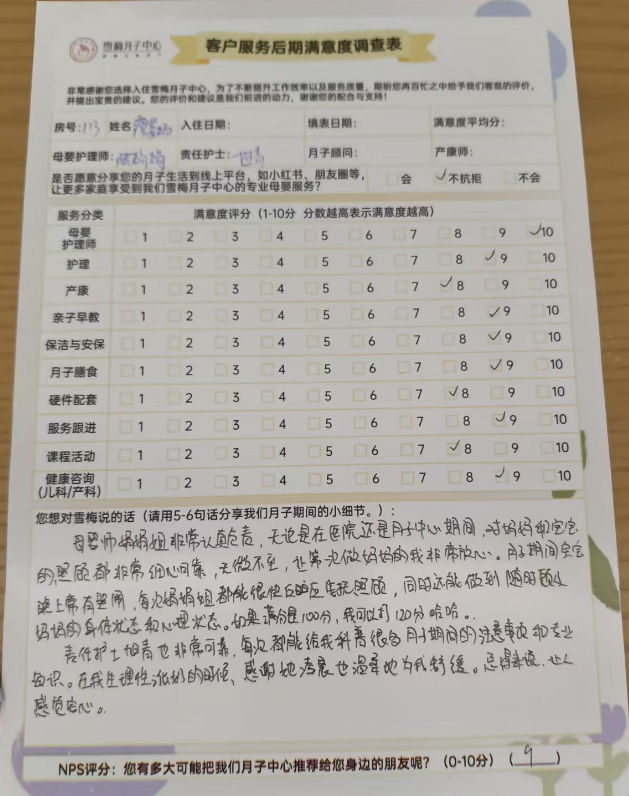 雪梅月子中心
客户服务后期满意度调查表
非常感谢您选择入住雪梅月子中心，为了不断提升工作效率以及服务质量，期盼您再百忙之中给予我们客观的评价，
并提出宝贵的建议。您的评价和建议是我们前进的动力，谢谢您的配合与支持！
房号：113 姓名 入住日期： 填表日期： 满意度平均分：
母婴护理师： 责任护士： 月子顾问： 产康师：
是否愿意分享您的月子生活到线上平台，如小红书、朋友圈等，
让更多家庭享受到我们雪梅月子中心的专业母婴服务？ 会 ✓不抗拒 不会
服务分类 满意度评分（1-10分 分数越高表示满意度越高）
母婴
护理师 1 2 3 4 5 6 7 8 9 ✓10
护理 1 2 3 4 5 6 7 8 ✓9 10
产康 1 2 3 4 5 6 7 ✓8 9 10
亲子早教 1 2 3 4 5 6 7 8 ✓9 10
保洁与安保 1 2 3 4 5 6 7 8 ✓9 10
月子膳食 1 2 3 4 5 6 7 8 ✓9 10
硬件配套 1 2 3 4 5 6 7 ✓8 9 10
服务跟进 1 2 3 4 5 6 7 8 ✓9 10
课程活动 1 2 3 4 5 6 7 ✓8 9 10
健康咨询
（儿科/产科） 1 2 3 4 5 6 7 8 ✓9 10
您想对雪梅说的话（请用5-6句话分享我们月子期间的小细节。）：
母婴师娟娟姐非常认真负责，无论是在医院还是月子中心期间，对妈妈和宝宝
的照顾都非常细心可靠，无微不至，让第一次做妈妈的我非常放心。月子期间宝宝
晚上常有哭闹，每次娟娟姐都能很快反应安抚照顾，同时还能做到随时顾及
妈妈的身体状态和心理状态。如果满分是100分，我可以打120分哈哈。
责任护士 也非常可靠，每次都能给我科普很多月子期间的注意事项和专业
知识。在我生理性涨奶的时候，感谢她凌晨也温柔地为我舒缓。总得来说，让人
感觉安心。
NPS评分：您有多大可能把我们月子中心推荐给您身边的朋友呢？（0-10分）（ 9 ）